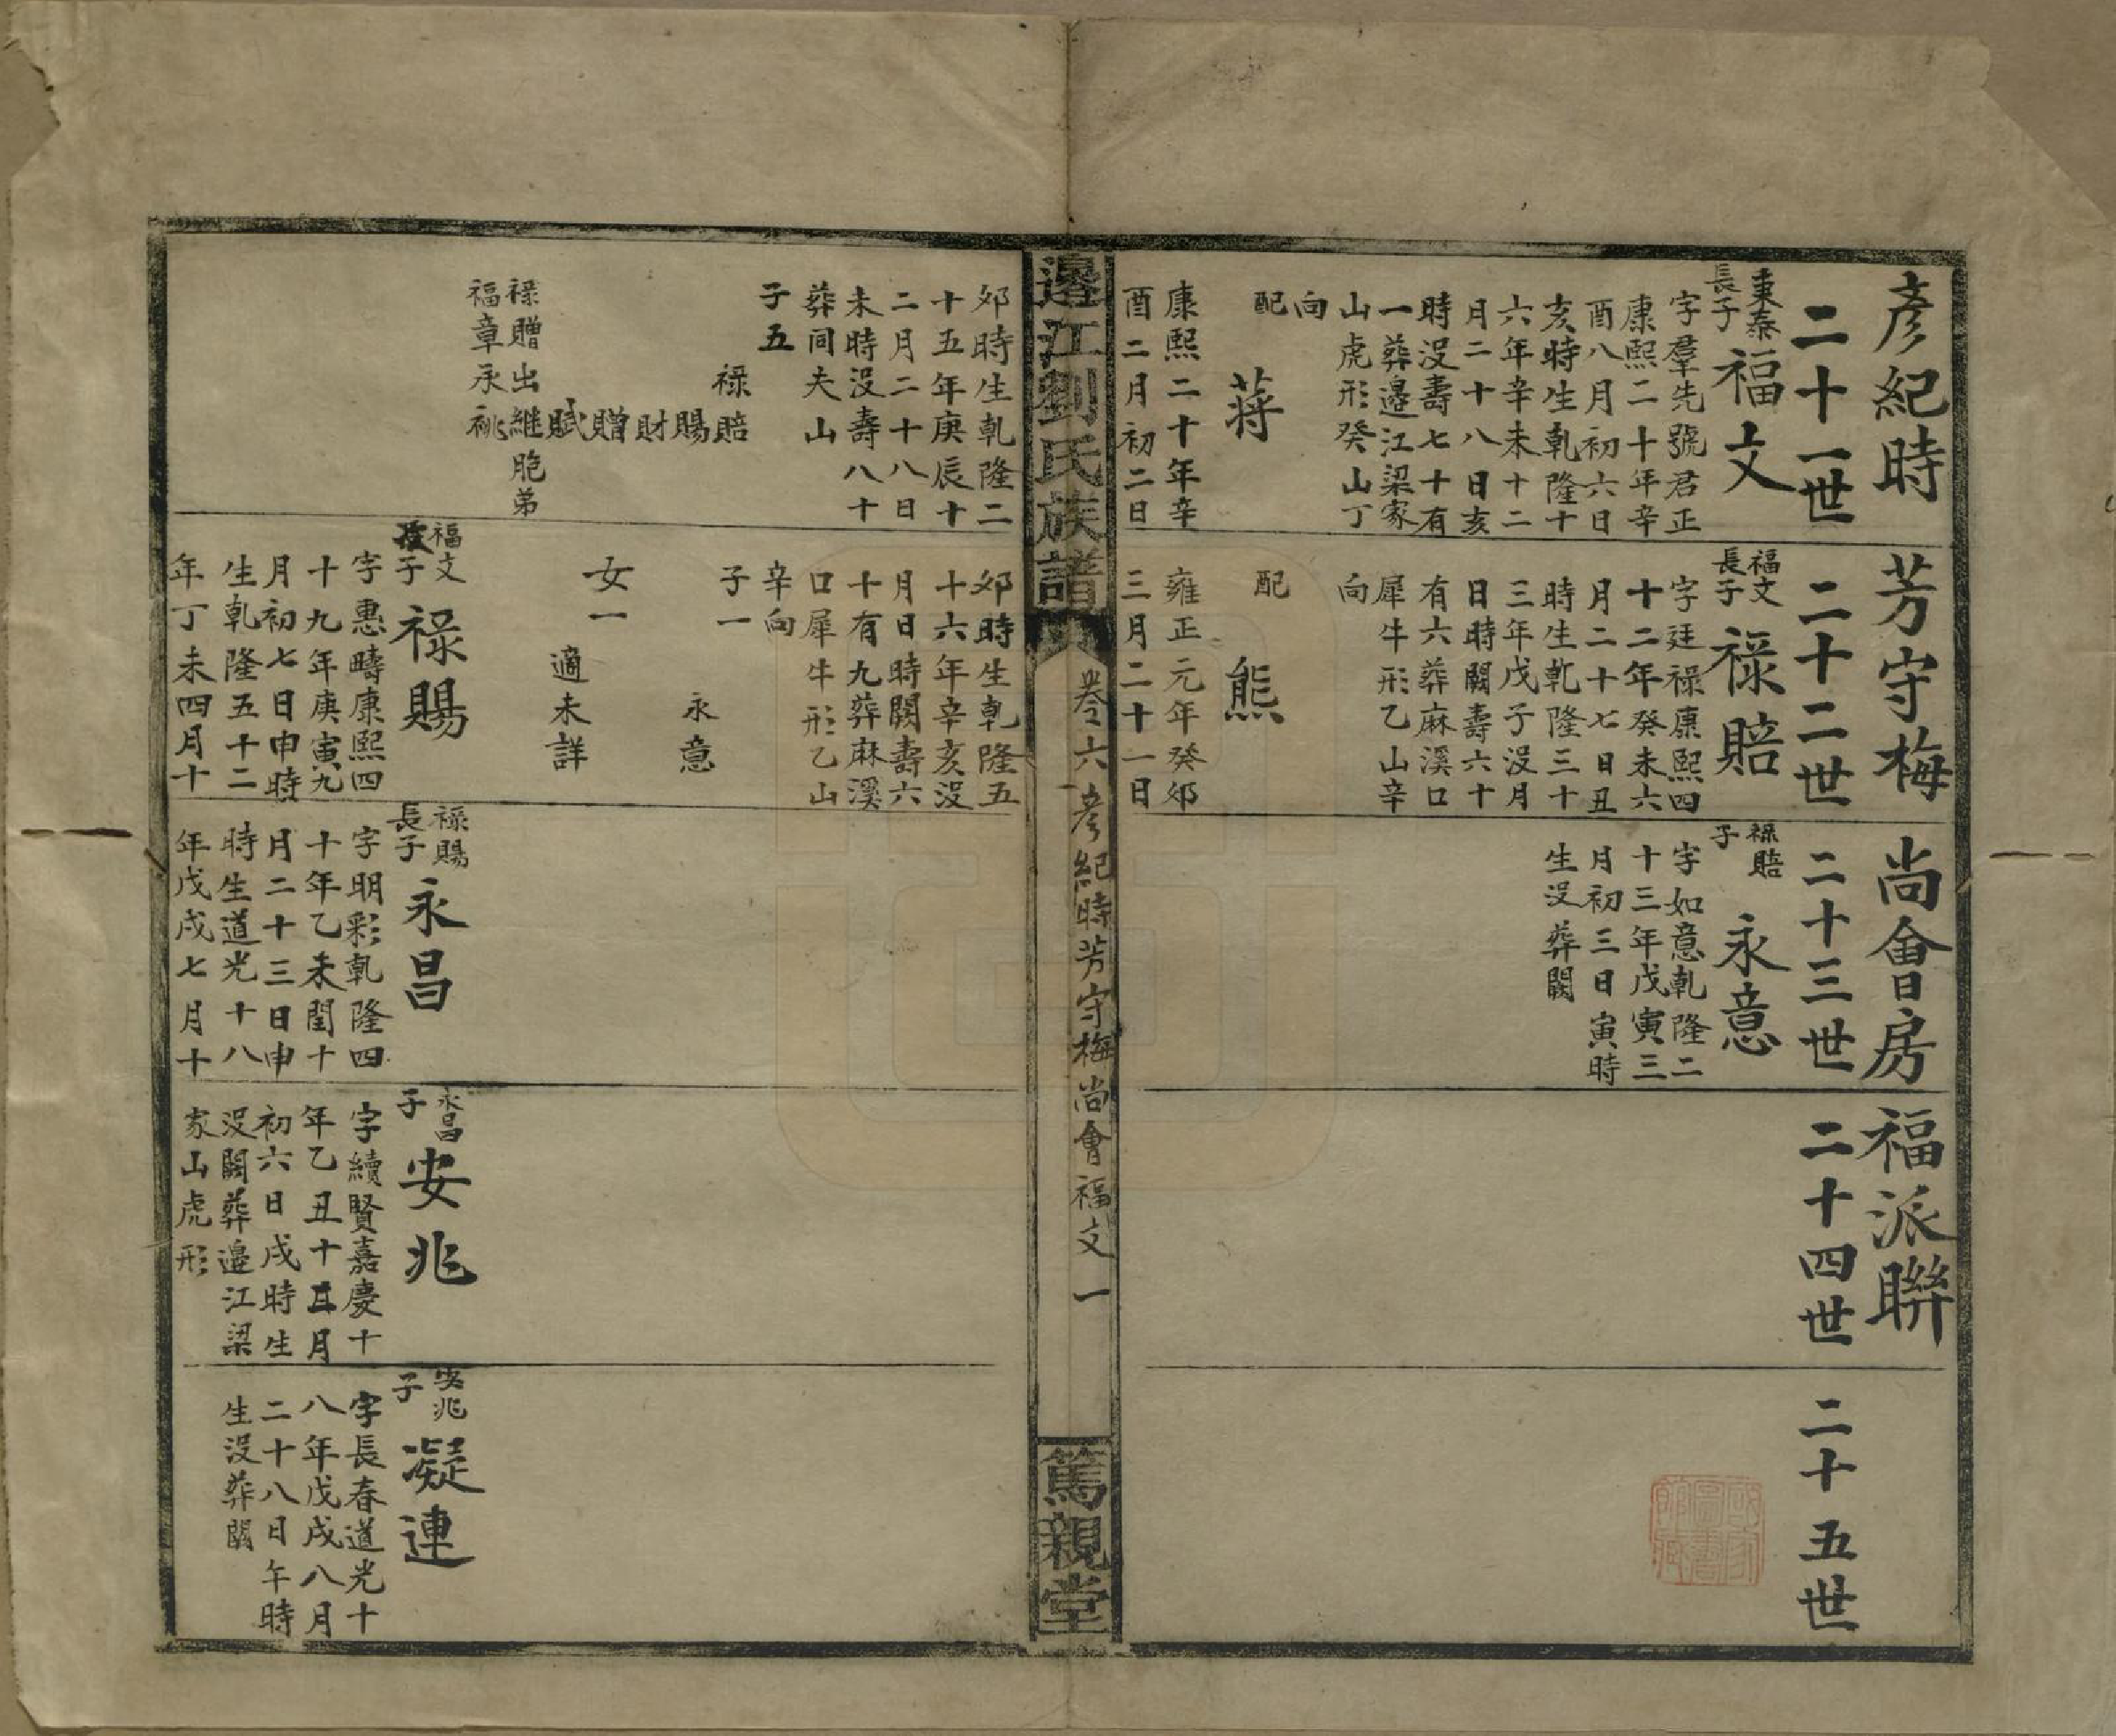 彥紀時芳守梅尚會房福派聯
二十一世
東泰長子
福文
字羣先號君正
康熙二十年辛
酉八月初六日
亥時生乹隆十
六年辛未十二
月二十八日亥
時没壽七十有
一葬邉江梁家
山虎形癸山丁
向
配
蔣
康熙二十年辛
酉二月初二日
夘時生乹隆二
十五年庚辰十
二月二十八日
未時没壽八十
葬同夫山
子五
祿賠
賜
財
贈
賦
祿贈出繼胞弟
福章承祧
二十二世
福文長子
祿賠
字廷祿康熙四
十二年癸未六
月二十七日丑
時生乹隆三十
三年戊子没月
日時闕壽六十
有六葬麻溪口
犀牛形乙山辛
向
配
熊
雍正元年癸夘
三月二十一日
夘時生乹隆五
十六年辛亥没
月日時闕壽六
十有九葬麻溪
口犀牛形乙山
辛向
子一
永意
女一
適未詳
福文
子
祿賜
字惠疇康熙四
十九年庚寅九
月初七日申時
生乹隆五十二
年丁未四月十
二十三世
祿賠子
永意
字如意乹隆二
十三年戊寅三
月初三日寅時
生没葬闕
祿賜長子
永昌
字明彩乹隆四
十年乙未閏十
月二十三日申
時生道光十八
年戊戌七月十
二十四世
永昌子
安兆
字續賢嘉慶十
年乙丑十月
初六日戌時生
没闕葬邉江梁
家山虎形
二十五世
安兆子
凝連
字長春道光十
八年戊戌八月
二十八日午時
生没葬闕
邉江劉氏族譜
卷六
彥紀時芳守梅尚會福文
一
篤親堂